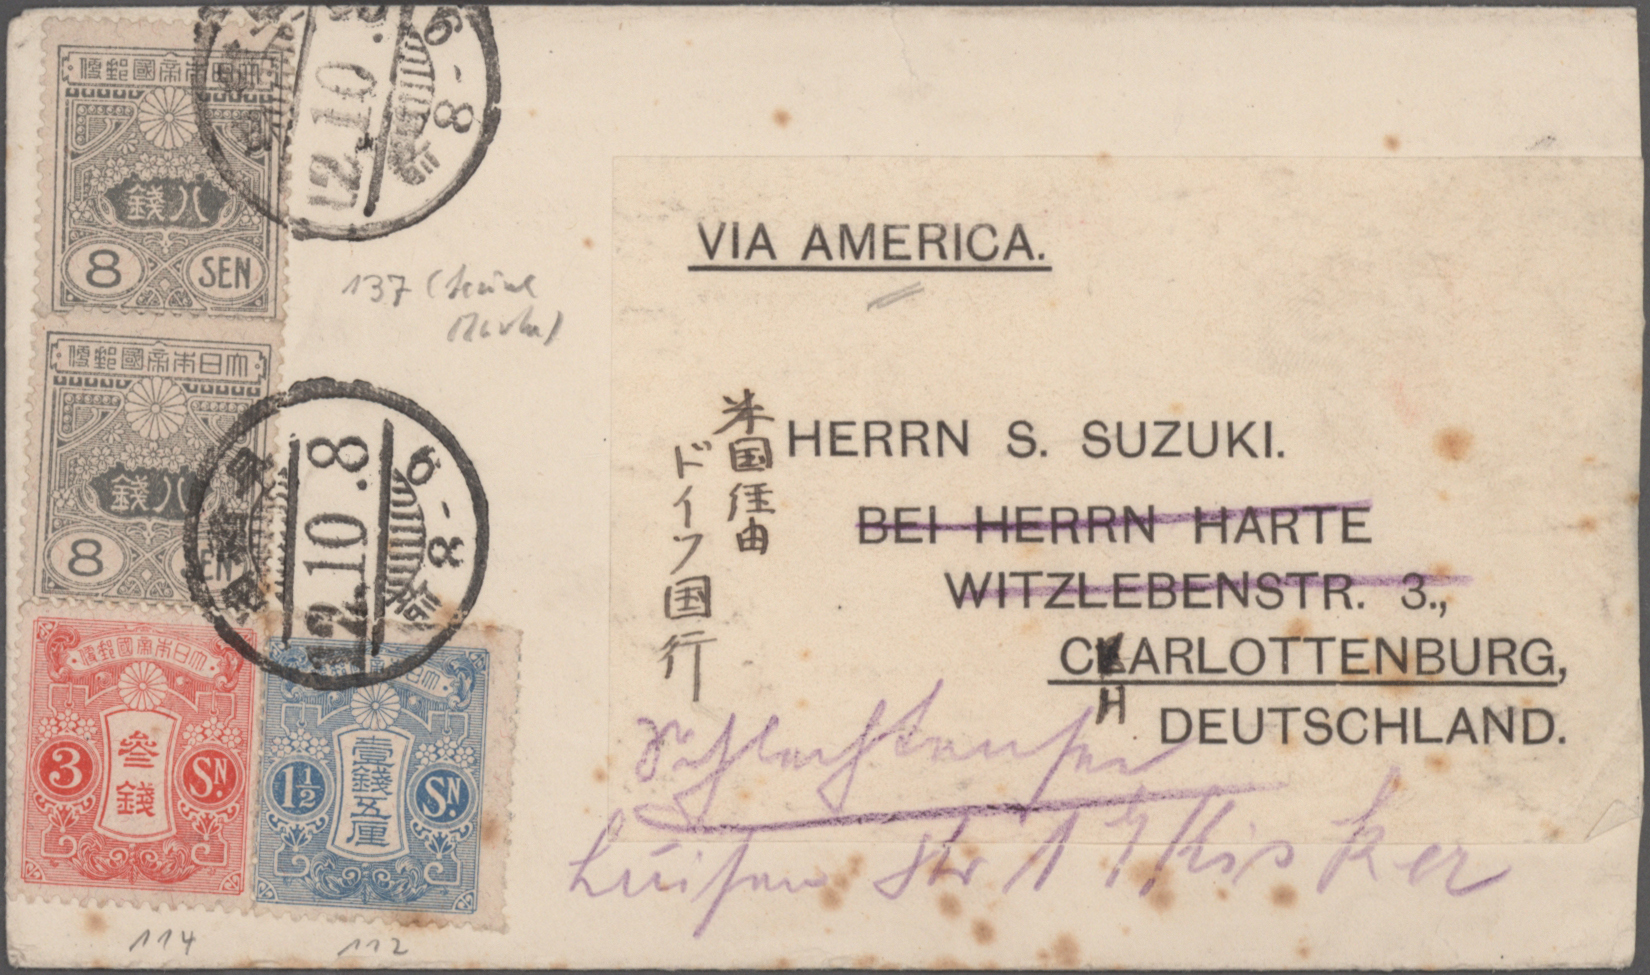 大日本帝國郵便
八錢
8 SEN
12.10.8
6-8
大日本帝國郵便
八錢
8 SEN
12.10.8
6-8
大日本帝國郵便
3 叁錢 SN
1½ 壹錢五厘 SN
137
114
112
VIA AMERICA.
米国経由
ドイツ国行
HERRN S. SUZUKI.
BEI HERRN HARTE
WITZLEBENSTR. 3.,
CHARLOTTENBURG,
DEUTSCHLAND.
Schlachtensee
Luisen str